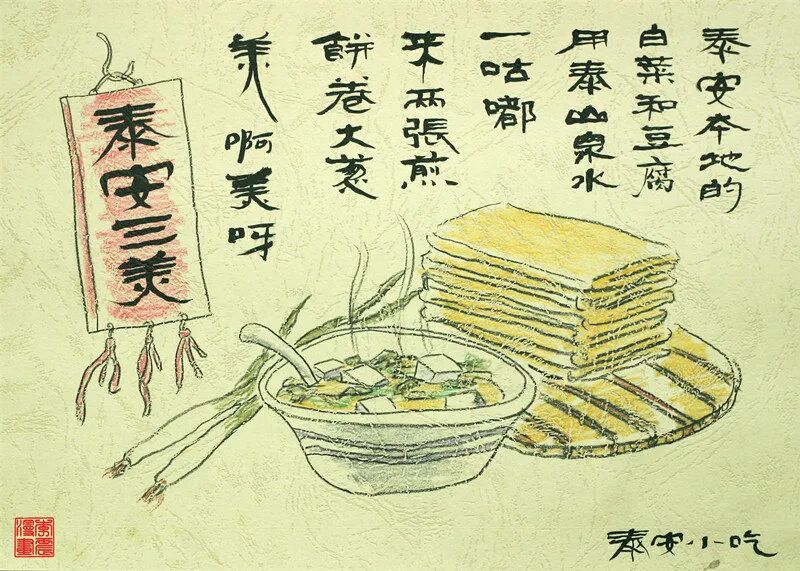 泰安本地的
白菜和豆腐
用泰山泉水
一咕嘟
来兩張煎
餅卷大葱
美啊美呀
泰安三美
泰安小吃
李震
漫畫